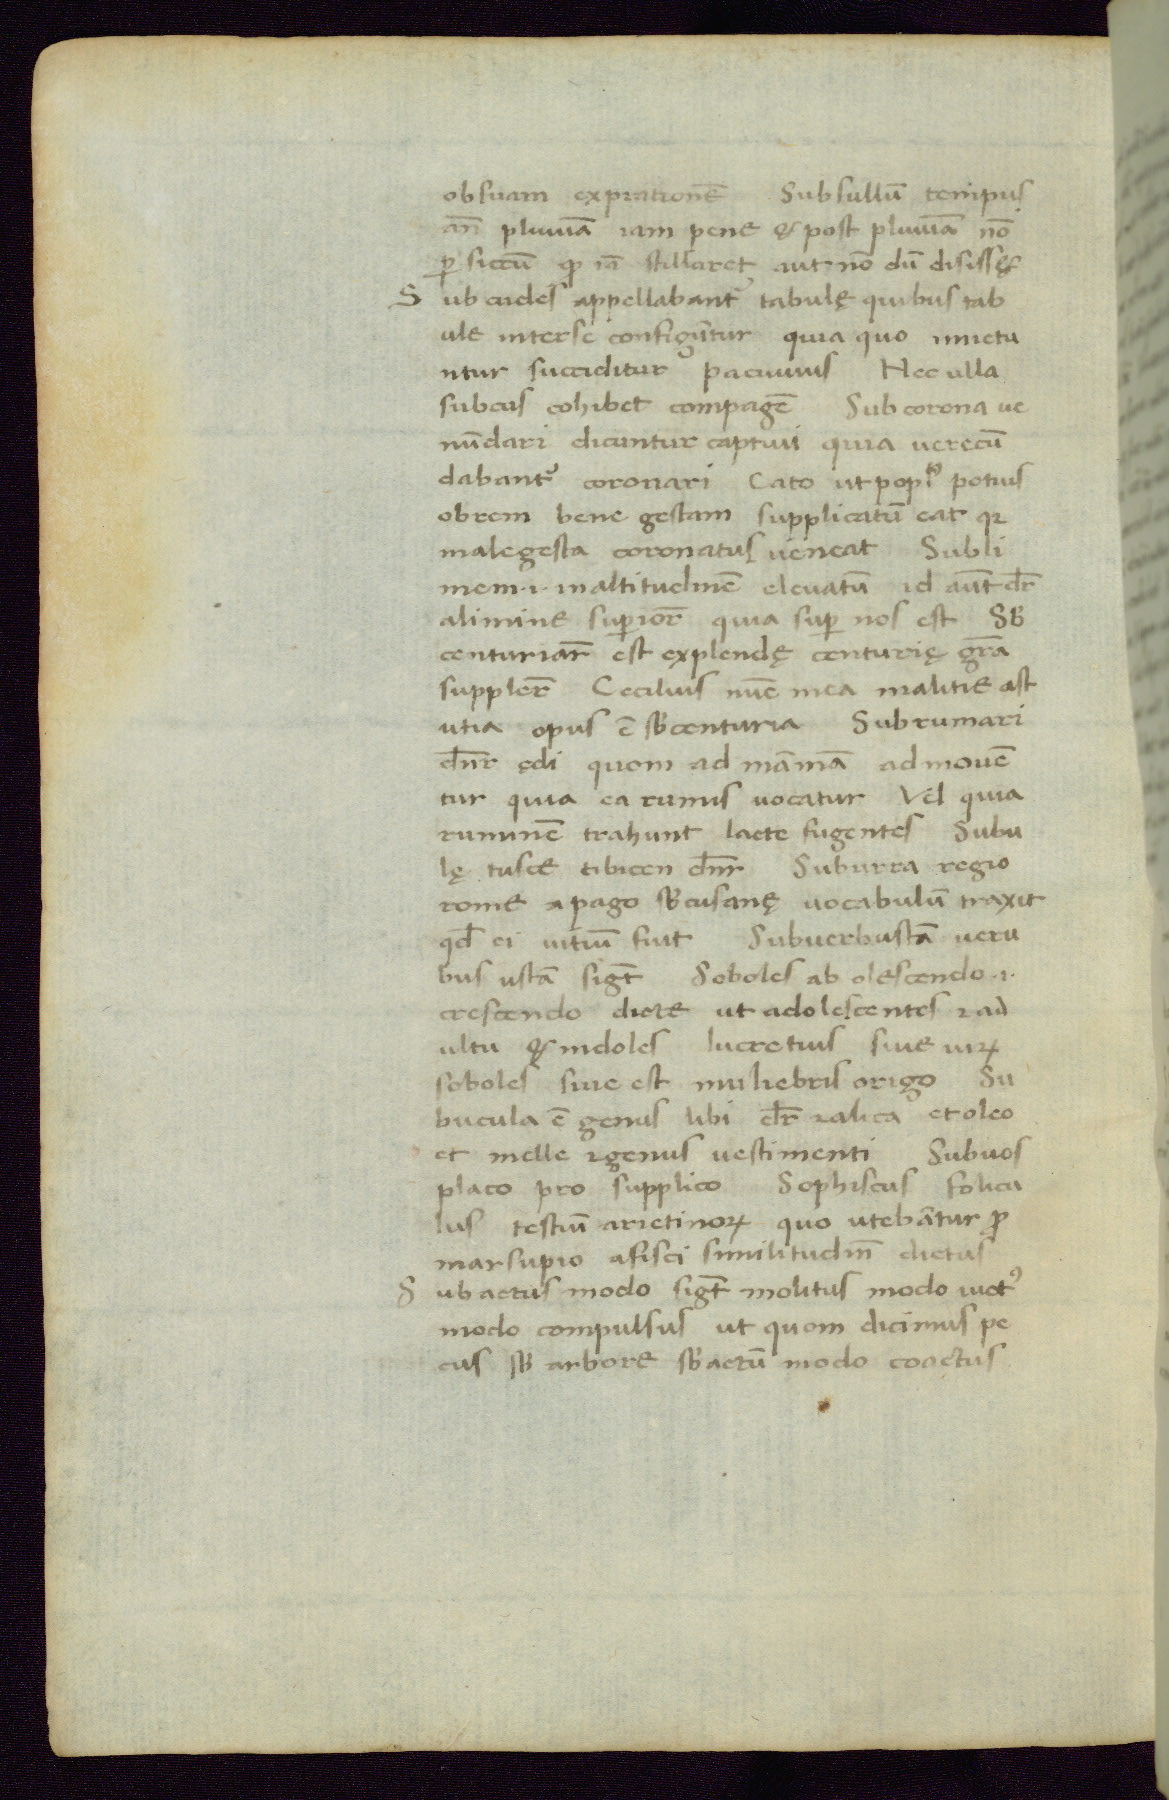 obsuam expiationē Subsullū tempus
an̄ pluuiā iam pene & post pluuiā nō
ꝑ siccū ꝙ iā stillaret aut nō dū disisset
Subcudes appellabantᷣ tabulę quibus tab
ule interse configūtur quia quo inmictu
ntur succiditur pacuuius Nec ulla
subcus cohibet compagē Sub corona ue
nūdari dicuntur captiui quia uerecū
dabantᷣ coronari Cato ut popl̓ꝰ potius
obrem bene gestam supplicatū eat qͣ
malegesta coronatus ueneat Subli
mem ·i· inaltitudinē eleuatū id aūt dr̄
alimine suꝑiorē quia suꝑ nos est Sb̄
centuriar̄ est explendę centurię gr̄a
supplerē Cecilius nūc mea malitie ast
utia opus ē sb̄centuria Subrumari
dn̄r ędi quom ad māmā ad mouē
tur quia ea rumis uocatur Vel quia
ruminē trahunt lacte sugentes Subu
lę tusce tibicen dn̄r Suburra regio
rome a pago sb̄cusanę uocabulū traxit
qd̄ ei uitiū fuit Subuerbustā ueru
bus ustā sigt̄ Soboles ab olescendo ·i·
crescendo dicte ut adolescentes ⁊ ad
ultu & indoles lucretius siue uirꝝ
soboles siue est muliebris origo Su
bucula ē genus libi dr̄ ⁊ alica et oleo
et melle ⁊ genus uestimenti Subuos
placo pro supplico Sophiscus folicu
lus testiū arietinoꝝ quo utebātur ꝓ
marsupio a fisci similitudin̄ dictus
Subactus modo sigt̄ molitus modo uictꝰ
modo compulsus ut quom dicimus pe
cus sb̄ arbore sb̄actū modo coactus